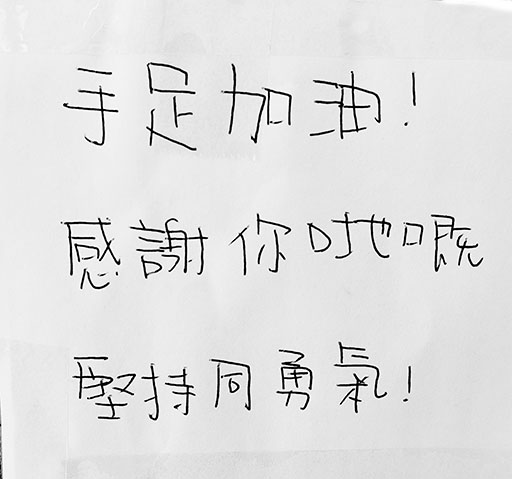 手足加油!
感謝你哋嘅
堅持同勇氣!